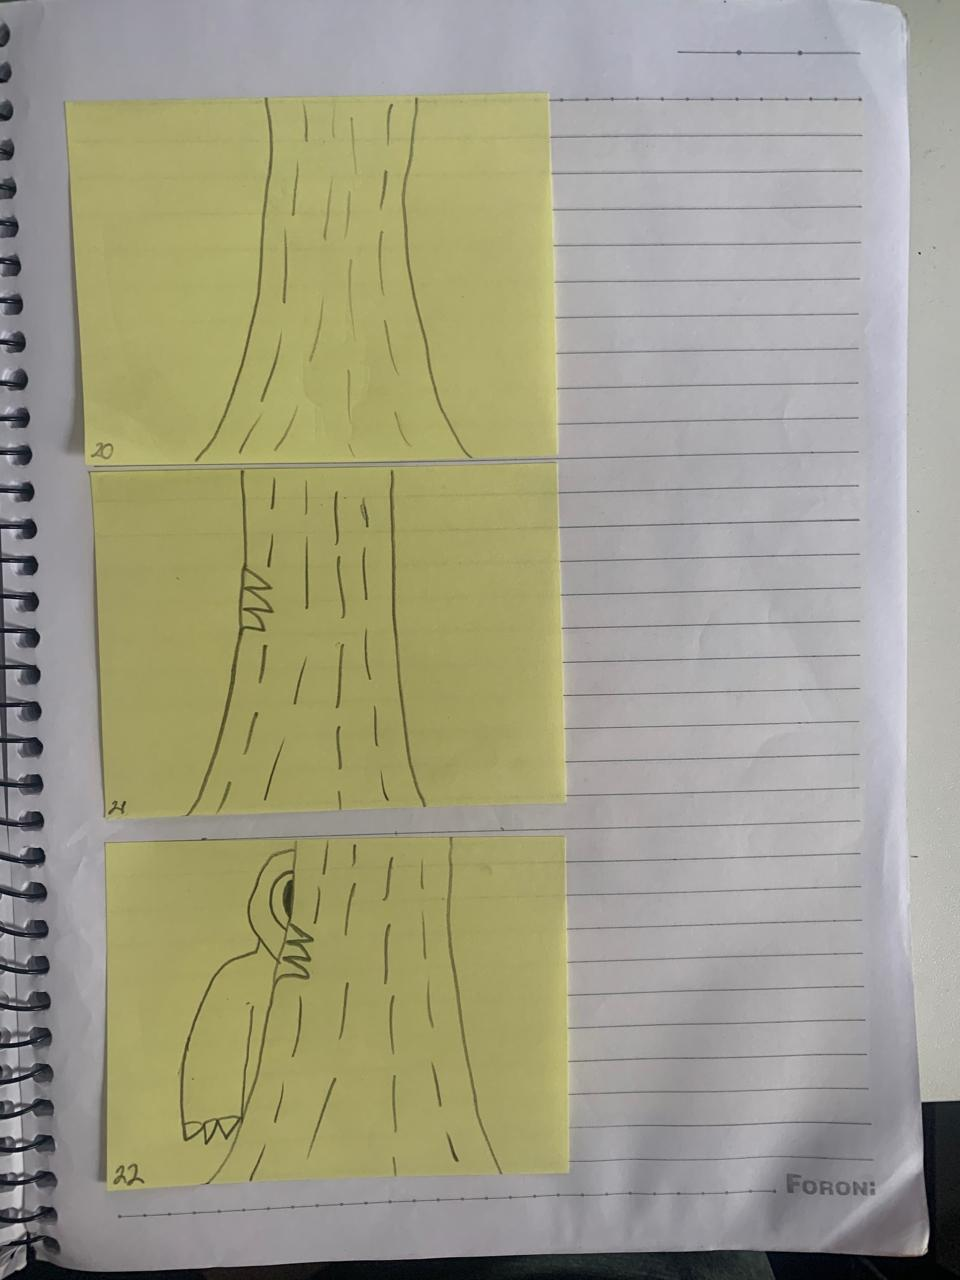 20
21
22
FORONI